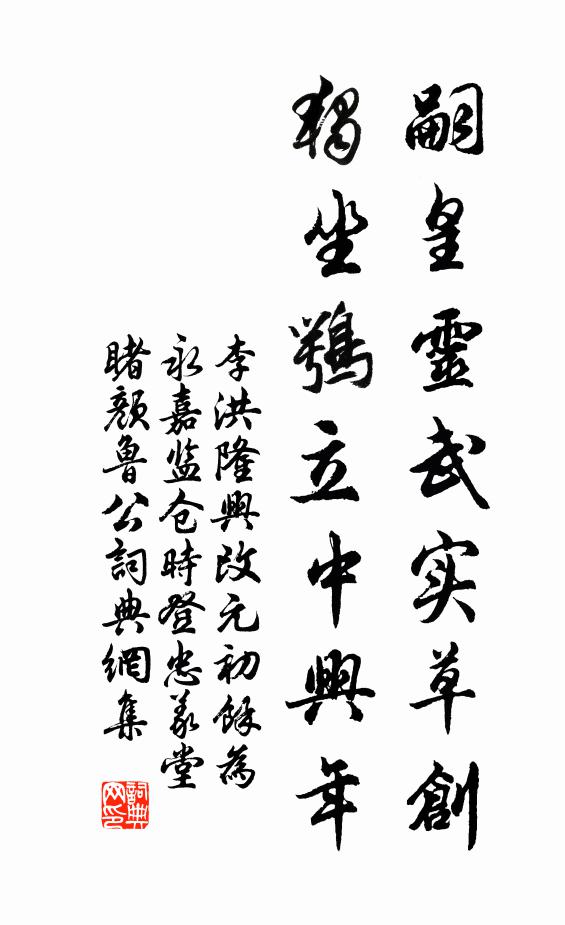 嗣皇靈武实草創
獨坐鶚立中興年
李洪隆興改元初餘為
永嘉监仓時登忠义堂
睹颜魯公詞典網集
詞典
网印